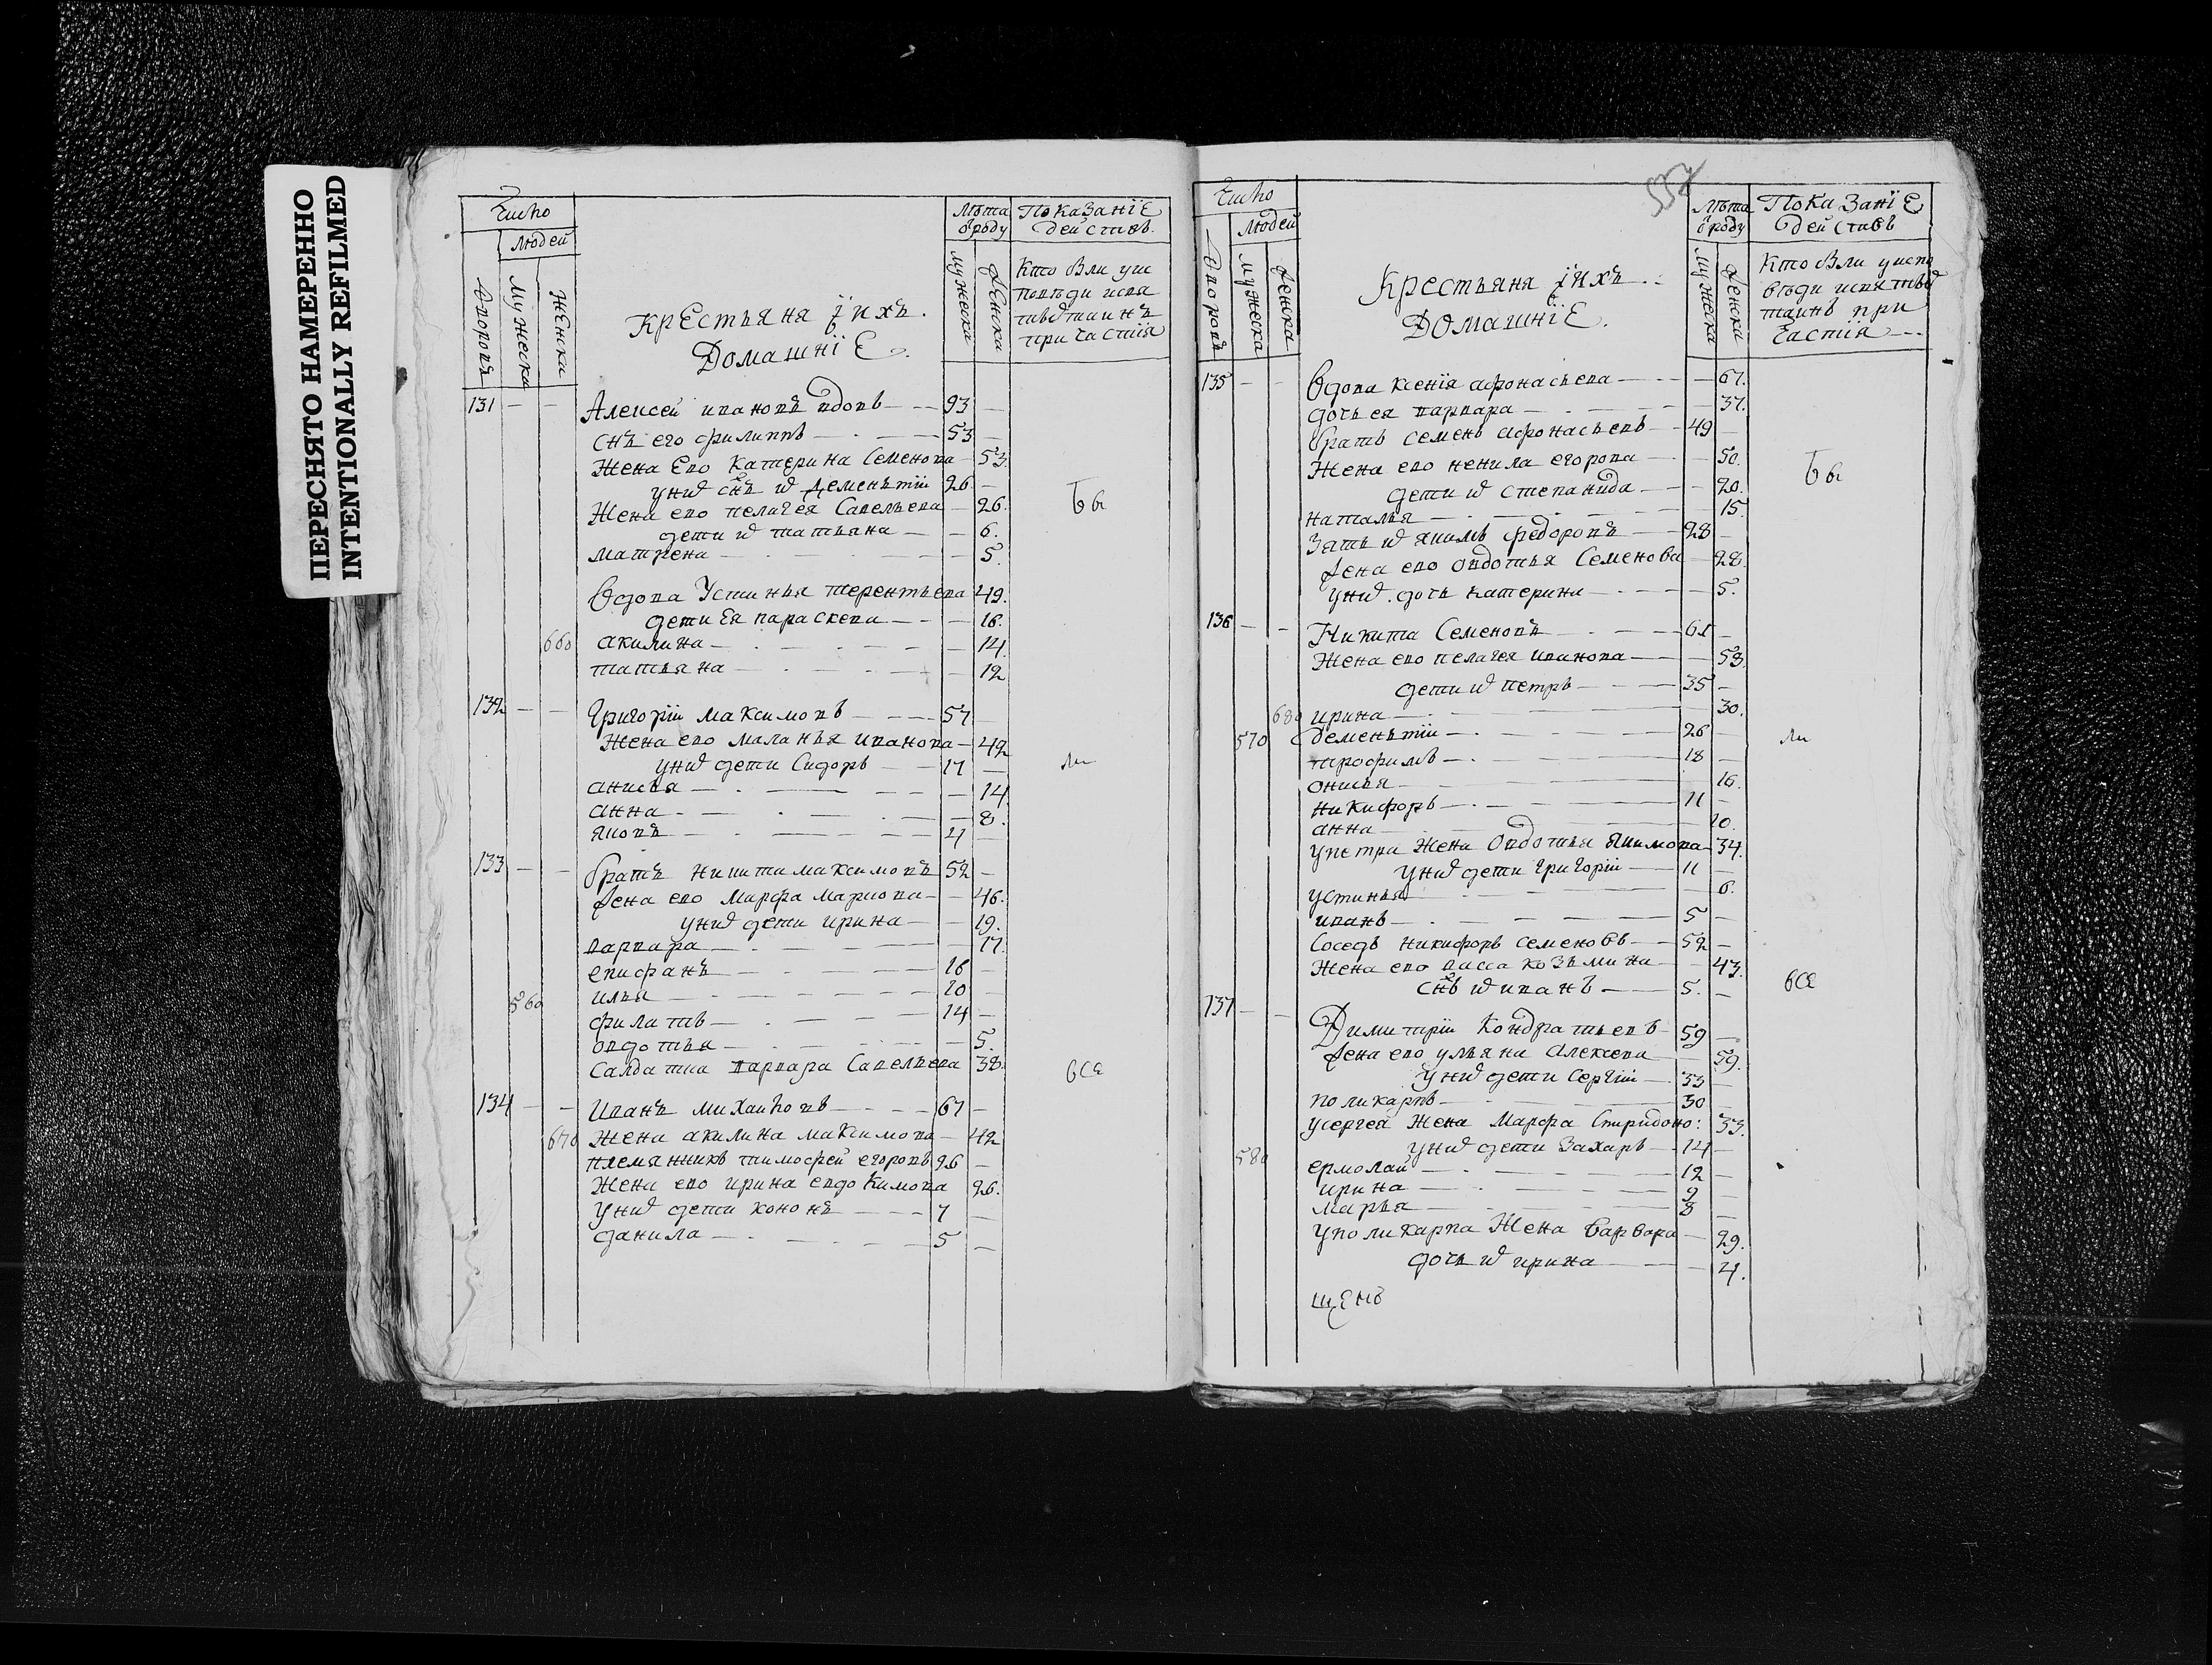 ПЕРЕСНЯТО НАМЕРЕННО
INTENTIONALLY REFILMED
Число
Людей
Дворовъ
Мужеска
Женска
Крестьяня їихъ
Домашнїе
Лѣта ѿроду
Мужеска
Женска
Показанїе действъ
Кто Были уис
повѣди исвя
тыхъ таинъ
причастїя
131 — — Алексей ивановъ вдовъ — 93 —
Снъ его филиппъ — 53 —
Жена Ево Катерина Семенова — 53.
унихъ снъ ихъ Дементїи 26 —
Жена ево пелагея Савельева — 26.
дети ихъ татьяна — 6.
матрена — 5.
Вдова Устинья терентьева 49.
дети Ея параскева — 16.
660 акилина — 14.
татьяна — 12
132 — — Григорїи максимовъ — 57 —
Жена ево маланья иванова — 42
унихъ дети Сидоръ — 17 —
анисья — 14
анна — 8.
яковъ — 4 —
133 — — братъ никита максимовъ 52 —
Жена ево Марфа Маркова — 46.
унихъ дети ирина — 19.
варвара — 17.
епифанъ — 16 —
560 илья — 20 —
филатъ — 14 —
овдотья — 5.
Салдатка варвара Савельева 38.
134 — — Иванъ михаиловъ — 67 —
670 Жена акилина максимова — 42
племянникъ тимофей егоровъ 26 —
Жена ево ирина евдокимова 26.
Унихъ дети кононъ — 7 —
данила — 5 —
Бы
ли
все
537
Число
Людей
Дворовъ
Мужеска
Женска
Крестьяня їихъ
Домашнїе.
Лѣта ѿроду
Мужеска
Женска
Показанїе действъ
Кто Были уиспо
вѣди исвятыхъ
таинъ при
частїя
135 — — Вдова ксенїя афонасьева — 67.
дочь ея варвара — 37.
братъ семенъ афонасьевъ — 49 —
Жена ево ненила егорова — 50.
дети ихъ степанида — 20.
наталья — 15.
Зять ихъ якимъ федоровъ — 28 —
Жена ево овдотья Семенова 28.
унихъ дочь катерина — 5.
136 — — Никита Семеновъ — 61 —
Жена ево пелагея иванова — 53
дети ихъ петръ — 35 —
680 ирина — 30.
570 дементїи — 26 —
трофимъ — 18 —
онисья — 16.
никифоръ — 11 —
анна — 10.
упетра Жена Овдотья Якимова 34.
Унихъ дети григорїи — 11 —
устинья — 6.
иванъ — 5 —
Соседъ никифоръ семеновъ — 52 —
Жена ево васса козьмина — 43.
снъ ихъ иванъ — 5. —
137 — — Димитрїи Кондратьевъ 59 —
Жена ево ульяна Алексева — 59.
Унихъ дети Сергїи — 33 —
поликарпъ — 30 —
усергея Жена Марфа Спиридоно: 33.
580 унихъ дети Захаръ — 14 —
ермолай — 12 —
ирина — 9 —
марья — 8 —
Уполикарпа Жена Варвара — 29.
дочь ихъ ирина — 4.
Бы
ли
все